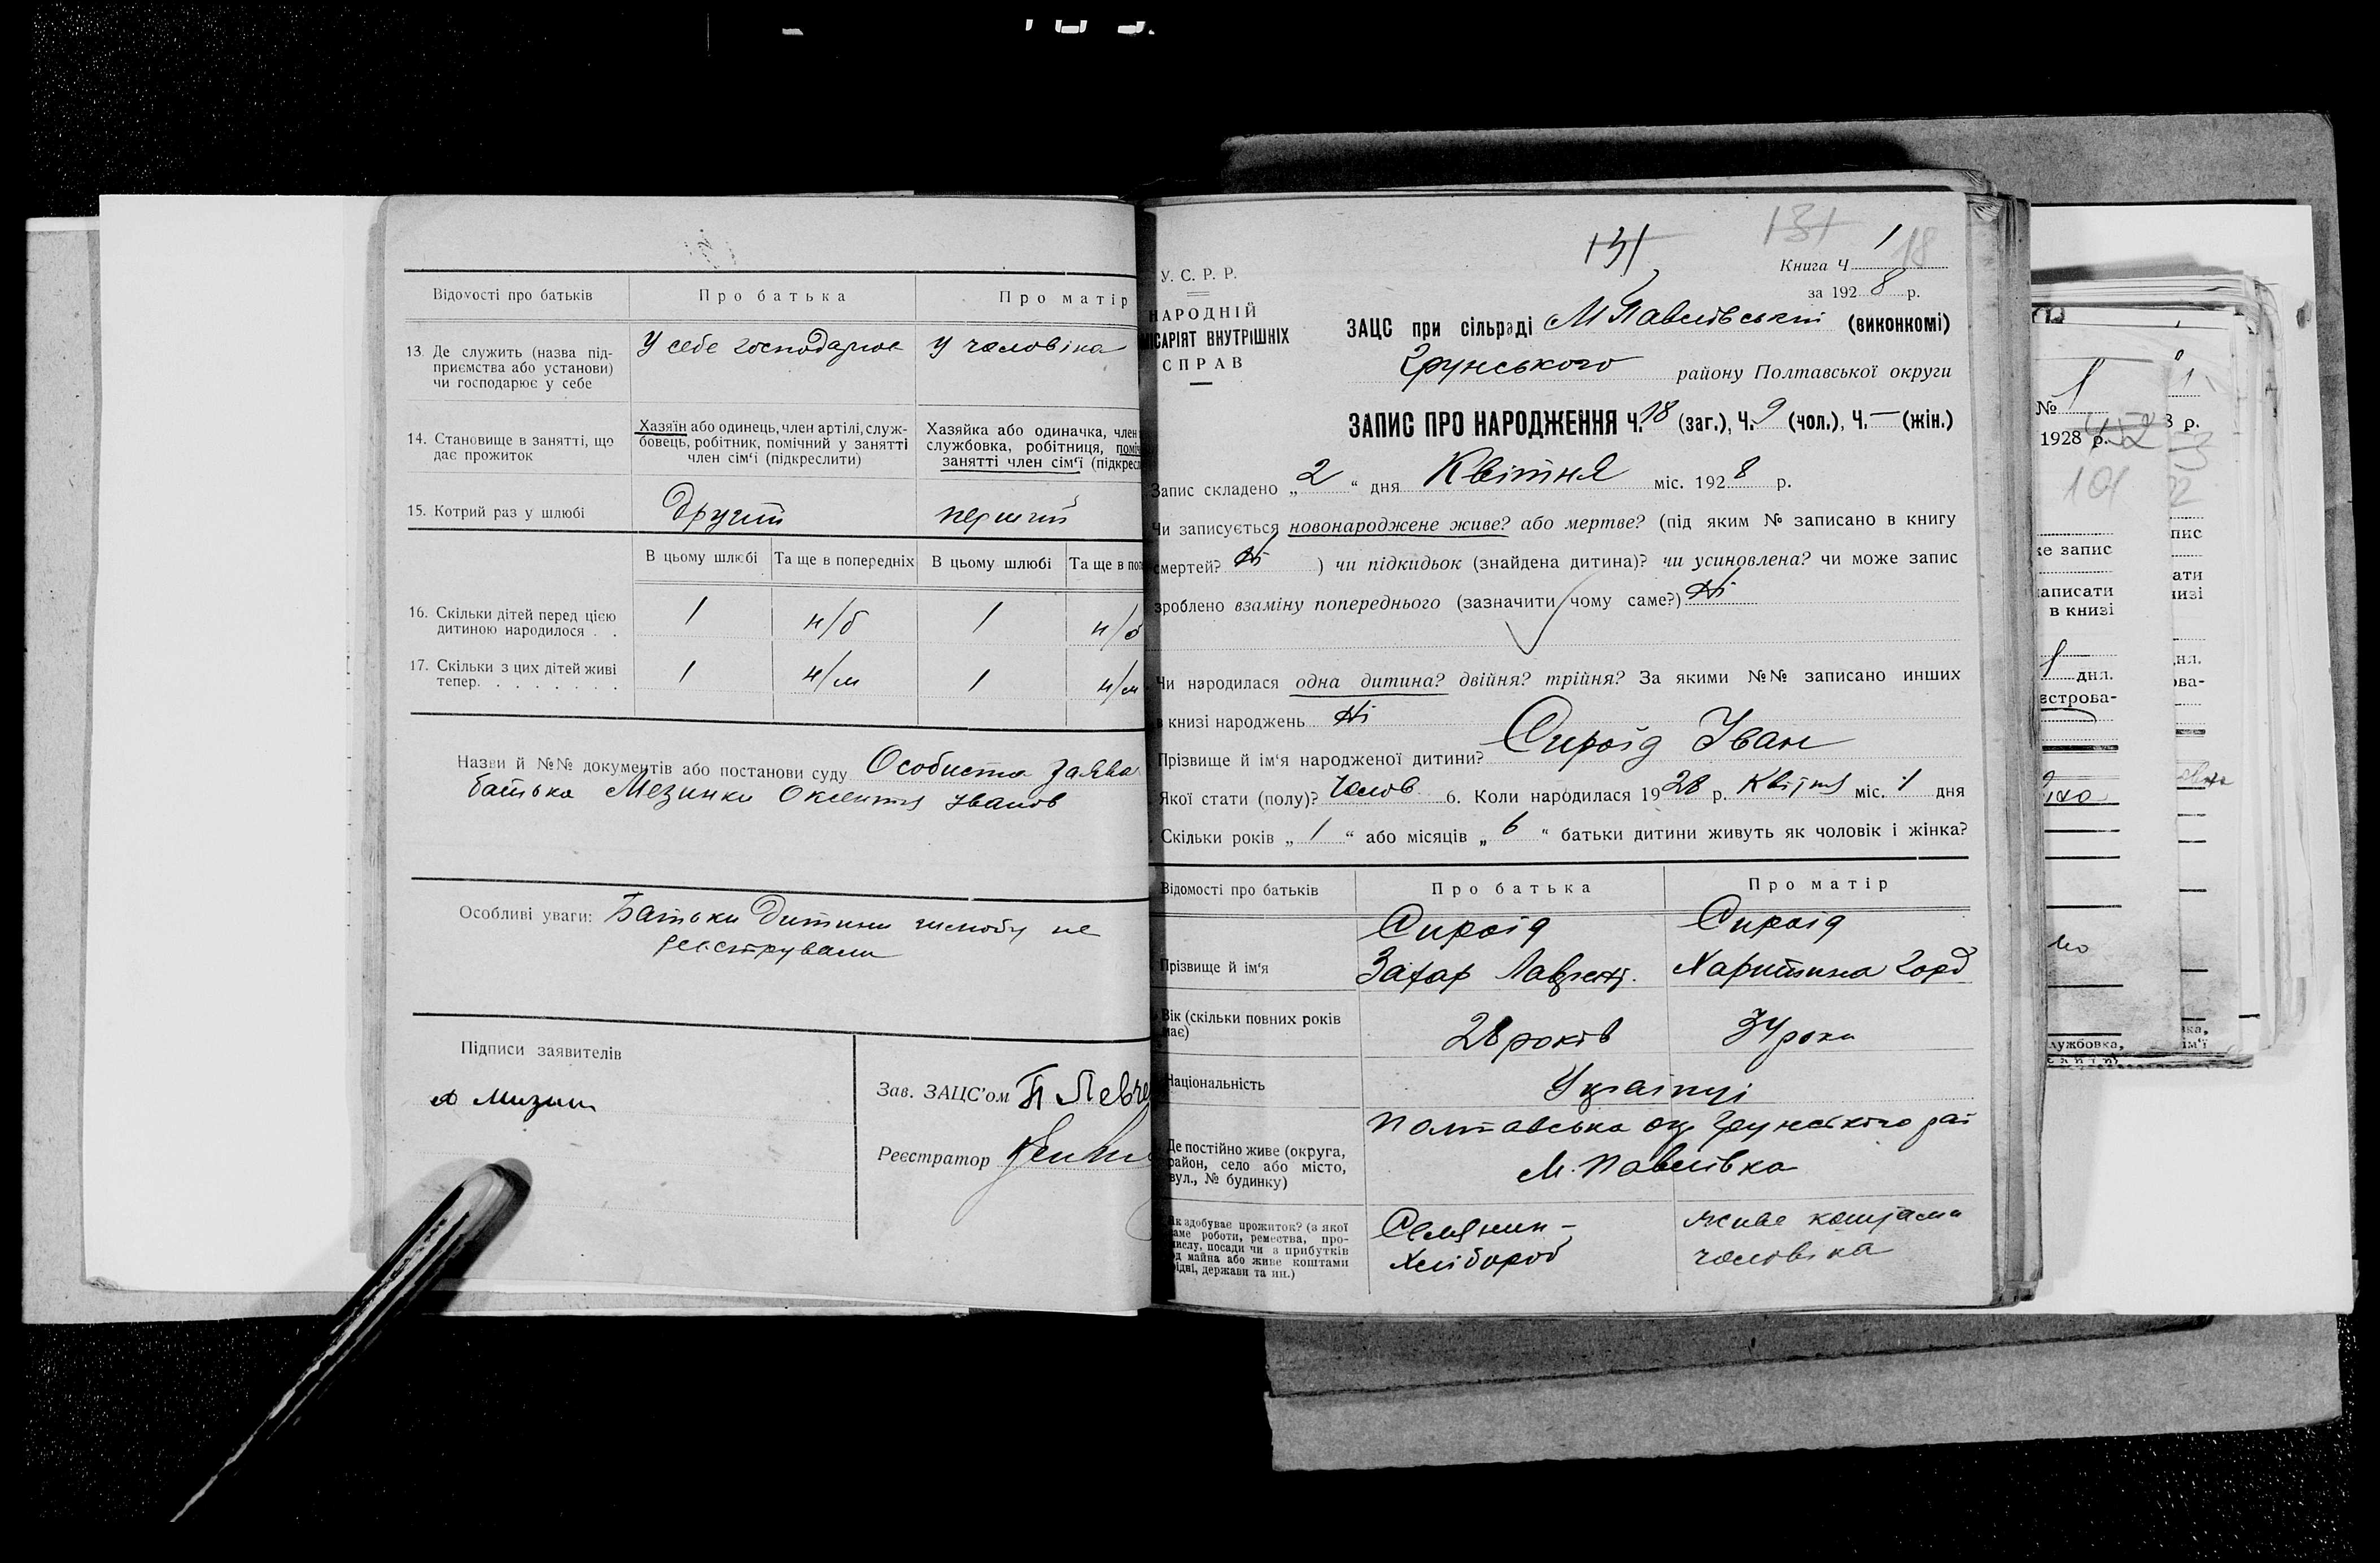 Відомості про батьків
Про батька
Про матір
13. Де служить (назва під-
приємства або установи)
чи господарює у себе
У себе господарює
У чоловіка
14. Становище в занятті, що
дає прожиток
Хазяїн або одинець, член артілі, служ-
бовець, робітник, помічний у занятті
член сім'ї (підкреслити)
Хазяйка або одиначка, член
службовка, робітниця,
занятті член сім'ї
15. Котрий раз у шлюбі
Другий
перший
В цьому шлюбі
Та ще в попередніх
В цьому шлюбі
Та ще в
16. Скільки дітей перед цією
дитиною народилося . .
1
н/б
1
н/б
17. Скільки з цих дітей живі
тепер. . . . . . . .
1
н/м
1
н/м
Назви й №№ документів або постанови суду Особиста Заява
батька Мезинки Оксентія Іванов
Особливі уваги: Батьки Дитини шлюбу не
реєстрували
Підписи заявителів
Зав. ЗАЦС'ом П Левче
Реєстратор
131
131
18
Книга Ч. 1
за 1928 р.
У. С. Р. Р.
НАРОДНІЙ
ВНУТРІШНІХ
СПРАВ
ЗАЦС при сільраді МПавлівській (виконкомі)
Грунського району Полтавської округи
ЗАПИС ПРО НАРОДЖЕННЯ Ч. 18 (заг.), Ч. 9 (чол.), Ч. — (жін.)
Запис складено „2“ дня Квітня міс. 1928 р.
Чи записується новонароджене живе? або мертве? (під яким № записано в книгу
смертей? Ні ) чи підкидьок (знайдена дитина)? чи усиновлена? чи може запис
зроблено взаміну попереднього (зазначити чому саме?) Ні
Чи народилася одна дитина? двійня? трійня? За якими №№ записано инших
в книзі народжень Ні
Прізвище й ім'я народженої дитини? Сироїд Іван
Якої стати (полу)? Чолов. 6. Коли народилася 1928 р. Квітня міс. 1 дня
Скільки років „1“ або місяців „6“ батьки дитини живуть як чоловік і жінка?
Відомості про батьків
Про батька
Про матір
Прізвище й ім'я
Сироїд
Захар Лаврент.
Сироїд
Харитина Горд
Вік (скільки повних років
має)
28 років
34 роки
Національність
Українці
Де постійно живе (округа,
район, село або місто,
вул., № будинку)
Полтавська окр Грунського рай
М. Павлівка
Як здобуває прожиток? (з якої
саме роботи, ремества, про-
мислу, посади чи з прибутків
од майна або живе коштами
рідні, держави та ин.)
Селянин -
Хлібороб
живе коштами
чоловіка
№ 1
1928 р.
101
же запис
написати
в книзі
дня.
службовка,